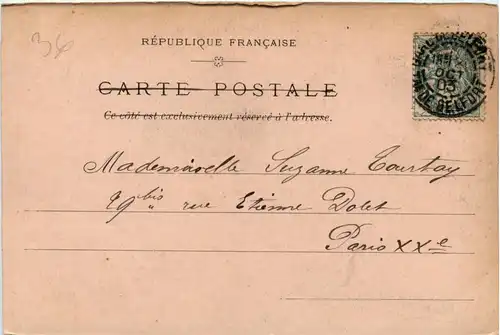 36
RÉPUBLIQUE FRANÇAISE
CARTE POSTALE
Ce côté est exclusivement réservé à l'adresse.
Mademoiselle Suzanne Tourtay
19 bis rue Etienne Dolet
Paris XXe
OCT
03
BELFORT